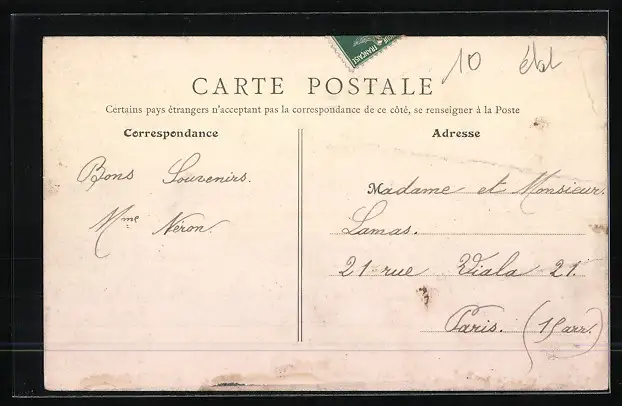 FRANÇAISE
10
CARTE POSTALE
Certains pays étrangers n'acceptent pas la correspondance de ce côté, se renseigner à la Poste
Correspondance
Adresse
Bons Souvenirs.
Mme Néron.
Madame et Monsieur
Lamas.
21 rue Viala 21.
Paris. (15 arr.)